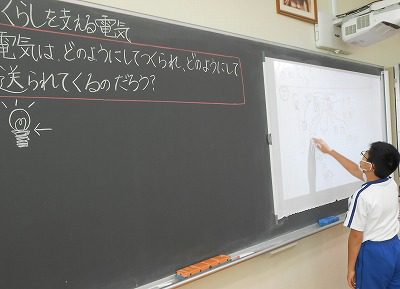 くらしを支える電気
電気は、どのようにしてつくられ、どのようにして
送られてくるのだろう?